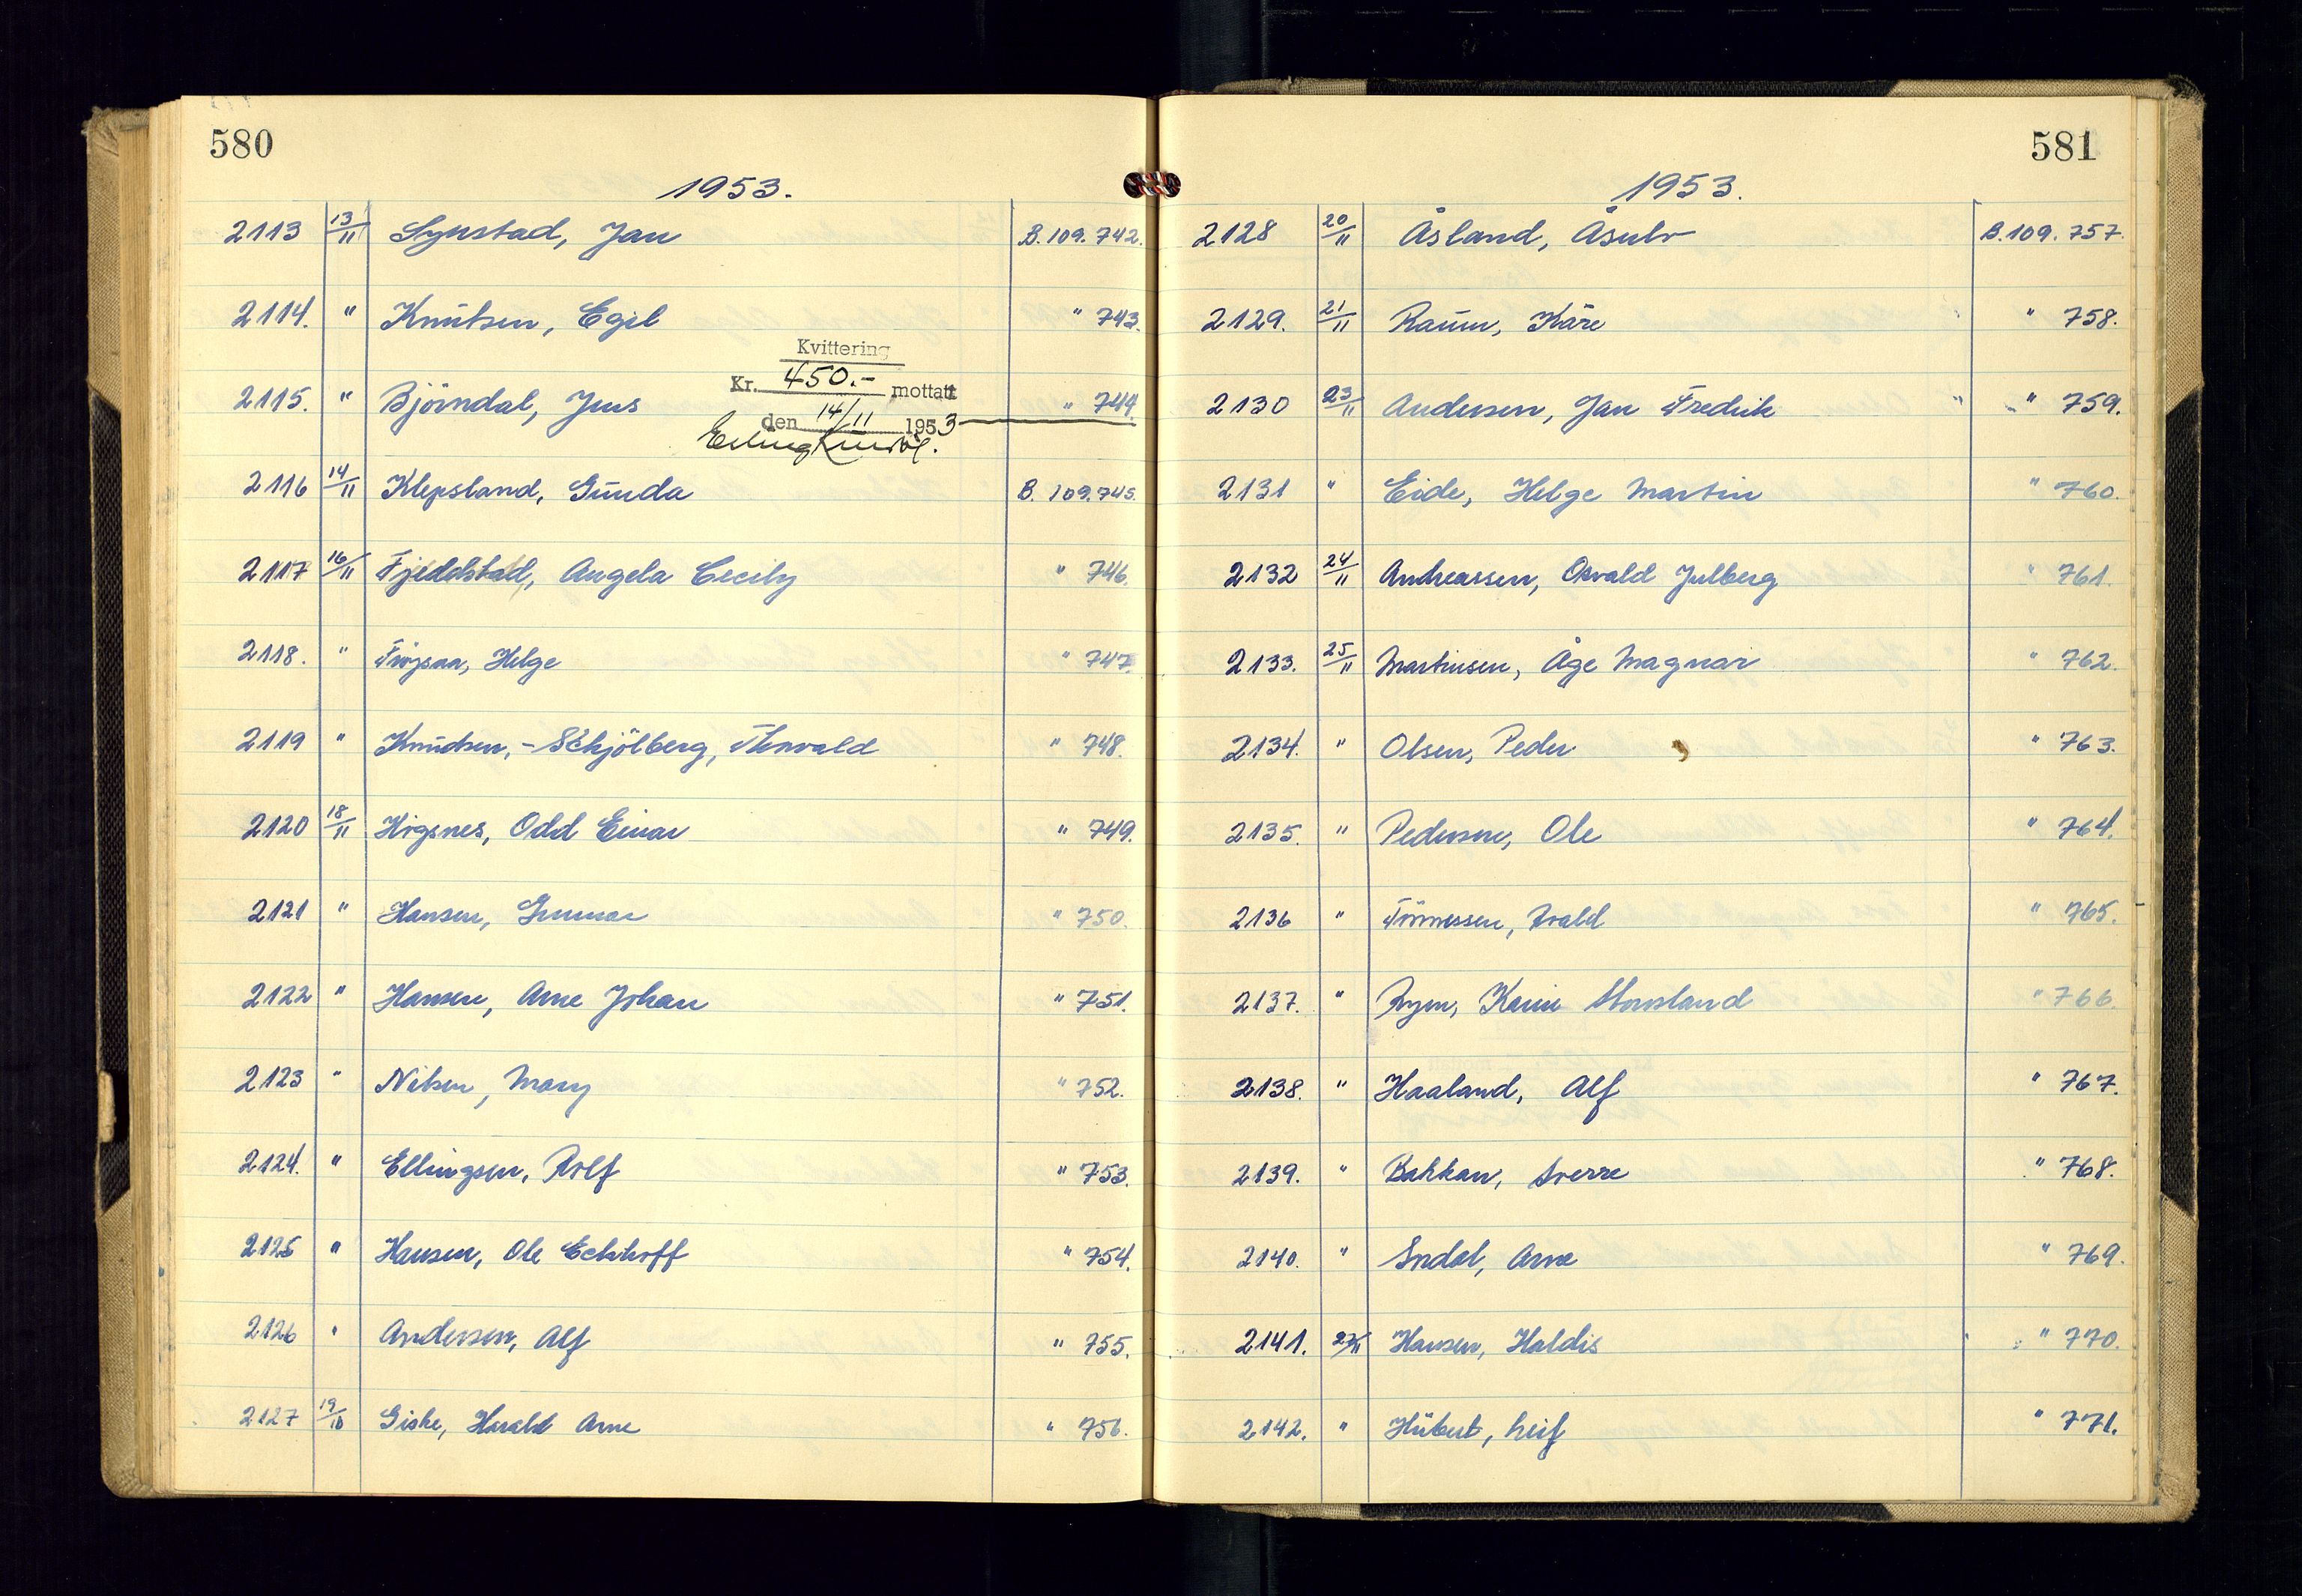 580
1953.
2113 13/11 Synstad, Jan B. 109. 742.
2114. " Knutsen, Egil " 743.
Kvittering
Kr. 450.- mottatt
2115. " Björndal, Jens " 744.
den 14/11 1953
Erling
2116 14/11 Klepsland, Gunda B. 109. 745.
2117 16/11 Fjeldstad, Angela Cecily " 746.
2118. " Fröysaa, Helge " 747.
2119 " Knudsen, - Schjölberg, Thorvald " 748.
2120 18/11 Högsnes, Odd Einar " 749.
2121 " Hansen, Gunnar " 750.
2122 " Hansen, Arne Johan " 751.
2123 " Nilsen, Mary " 752.
2124. " Ellingsen, Rolf " 753.
2125 " Hansen, Ole Eckhoff " 754.
2126 " Andersen, Alf " 755.
2127 19/10 Giske, Harald Arne " 756.
581
1953.
2128 20/11 Åsland, Åsulv B. 109. 757.
2129. 21/11 Raum, Kåre " 758.
2130 23/11 Andersen, Jan Fredrik " 759.
2131 " Eide, Helge Martin " 760.
2132 24/11 Andreassen, Osvald Julberg " 761.
2133. 25/11 Martinsen, Åge Magnar " 762.
2134. " Olsen, Peder " 763.
2135. " Pedersen, Ole " 764.
2136 " Tönnessen, Roald " 765.
2137. " Ryen, Karin " 766.
2138. " Haaland, Alf " 767.
2139. " Bakkan, Sverre " 768.
2140. " Sndal, Arne " 769.
2141. 27/11 Hansen, Haldis " 770.
2142. " Hübert, Leif " 771.